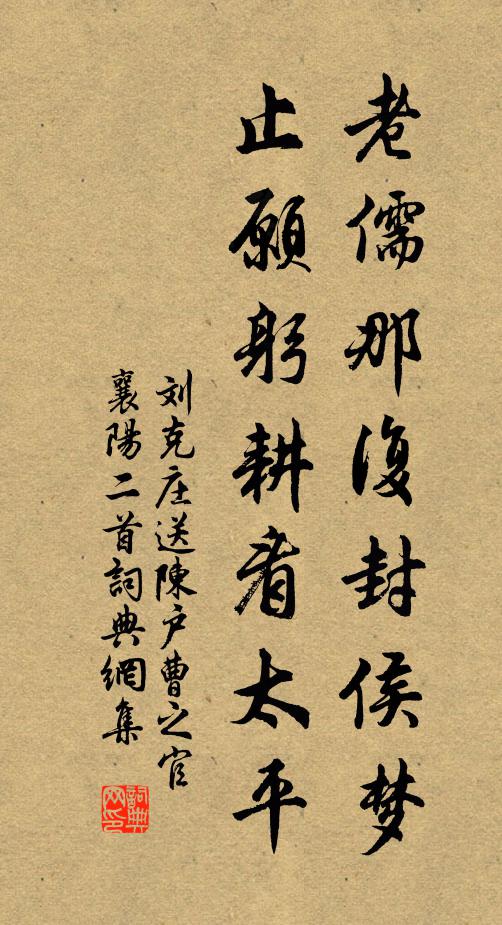 老儒那復封侯梦
止願躬耕看太平
刘克庄送陳户曹之官
襄陽二首詞典網集
詞典网印